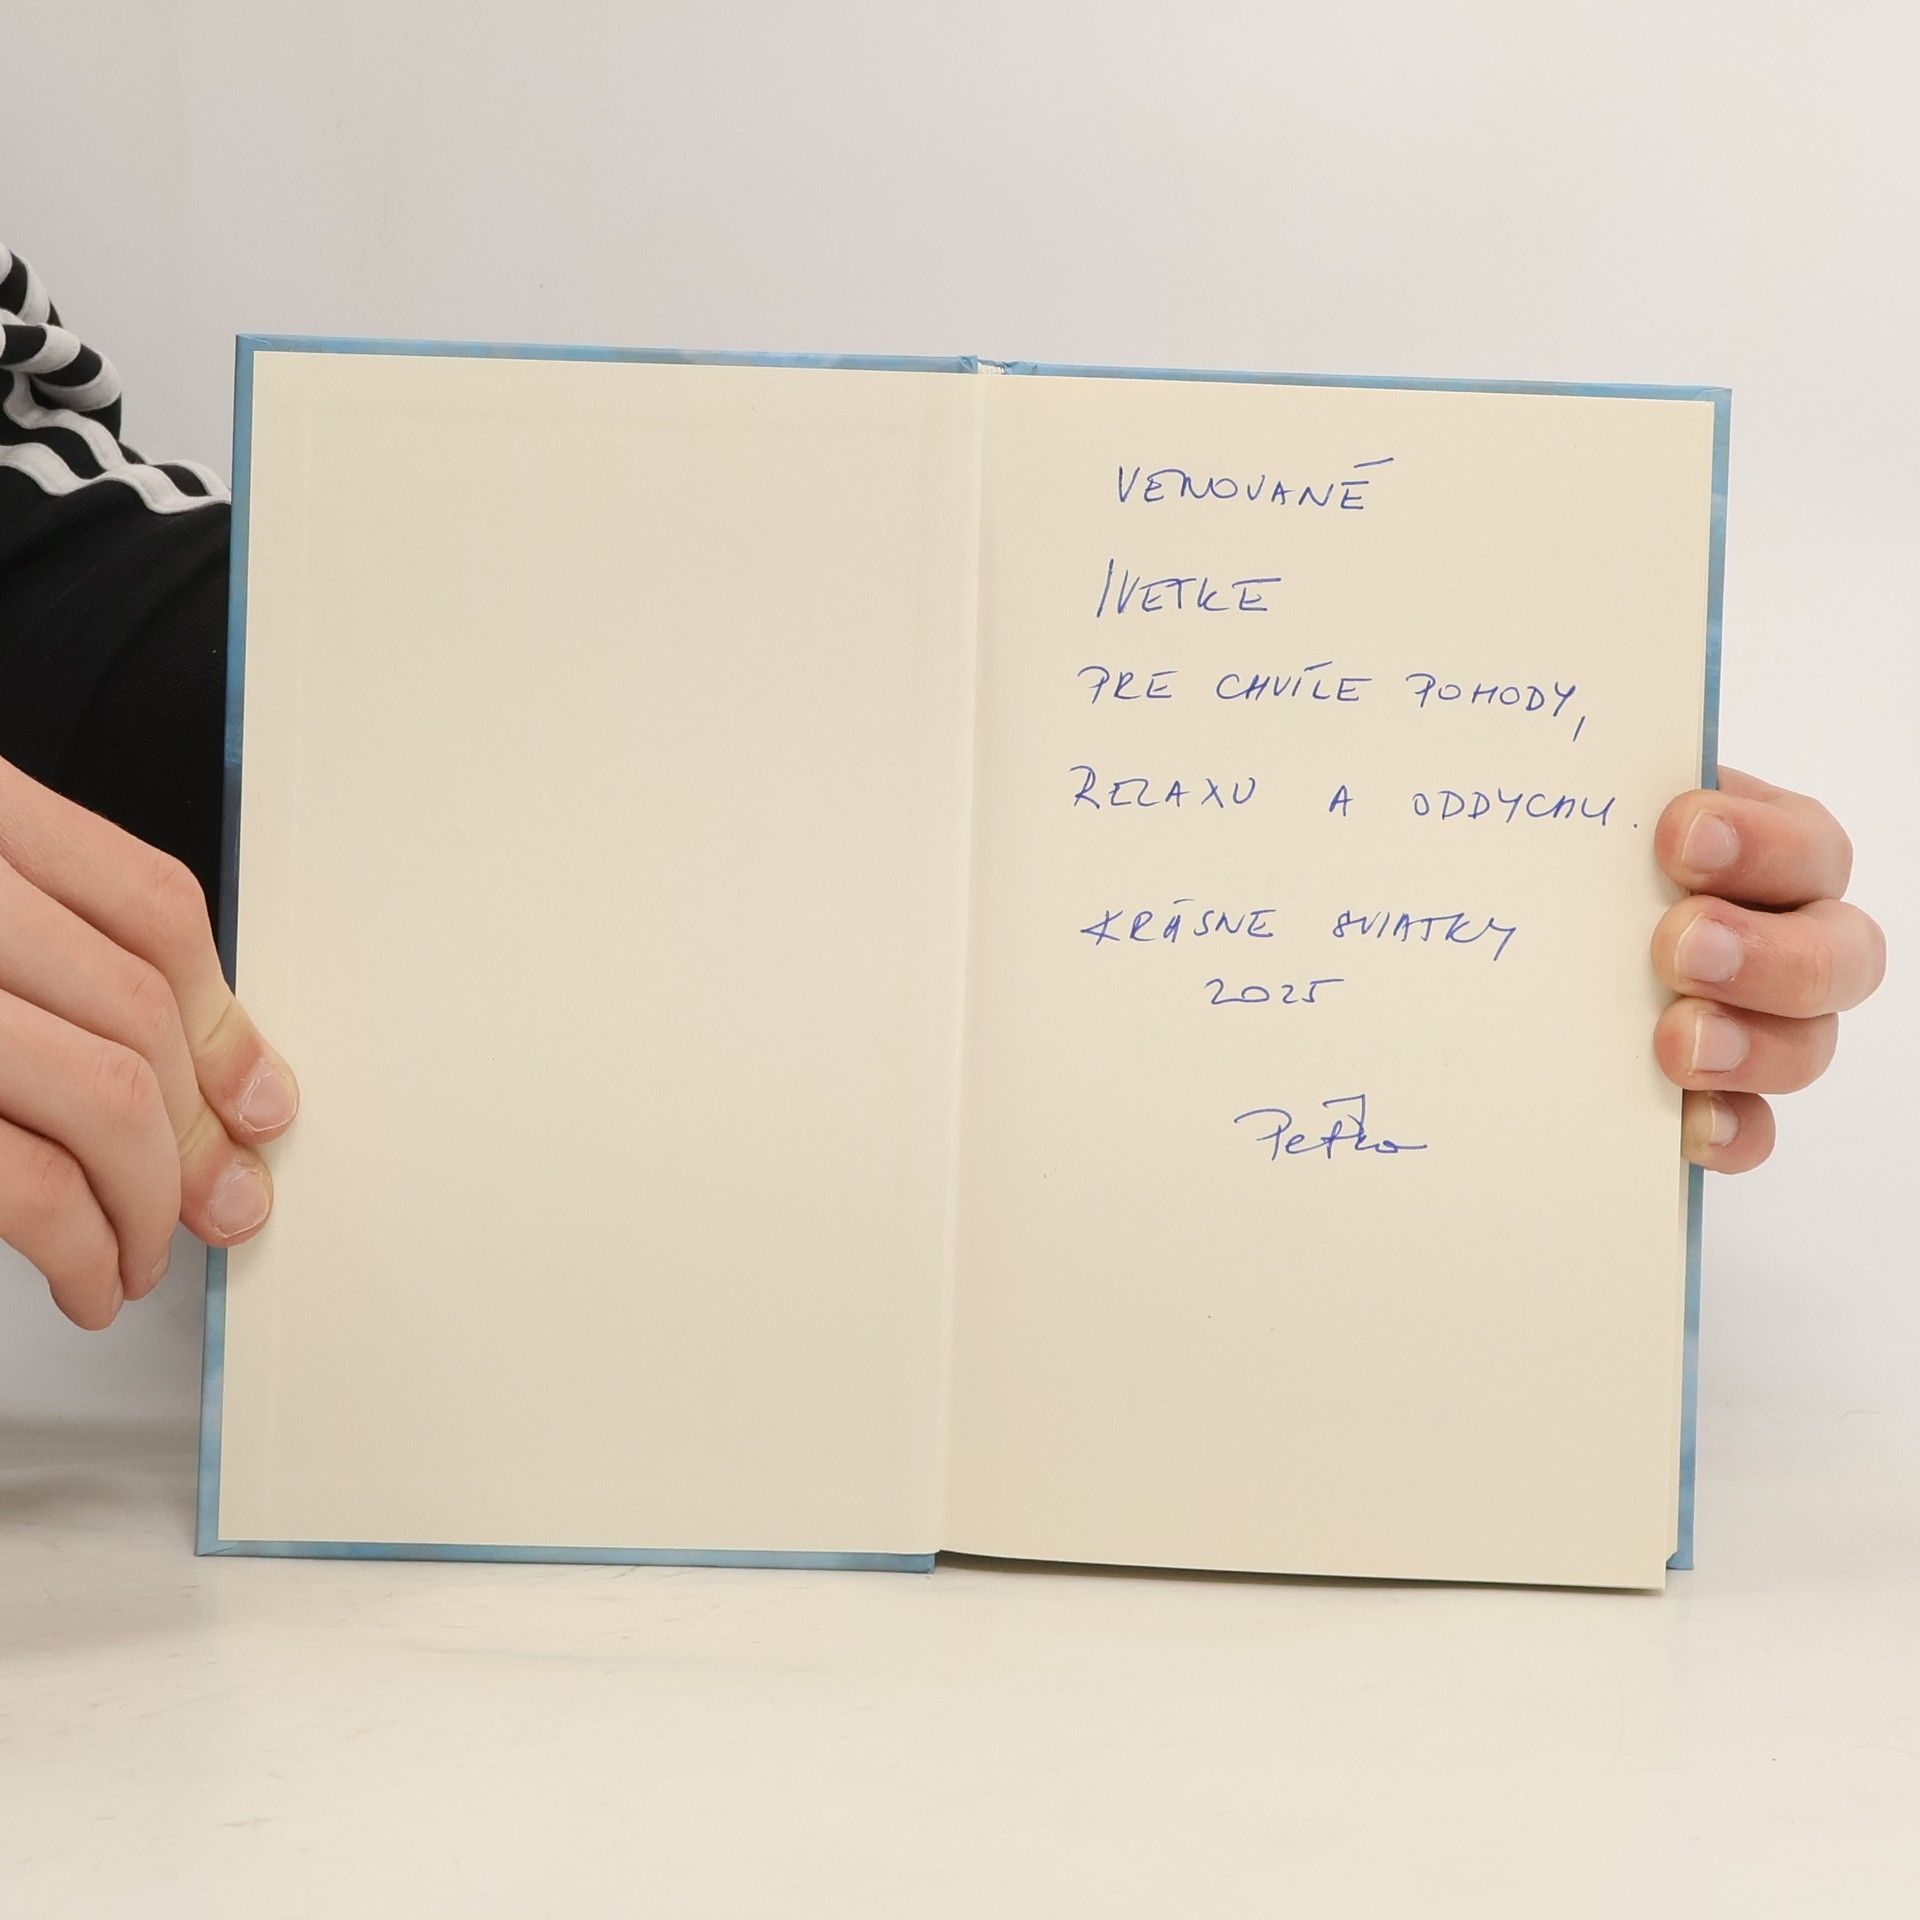 VENOVANÉ
IVETKE
PRE CHVÍLE POHODY,
RELAXU A ODDYCHU.
KRÁSNE SVIATKY
2025
Peťko